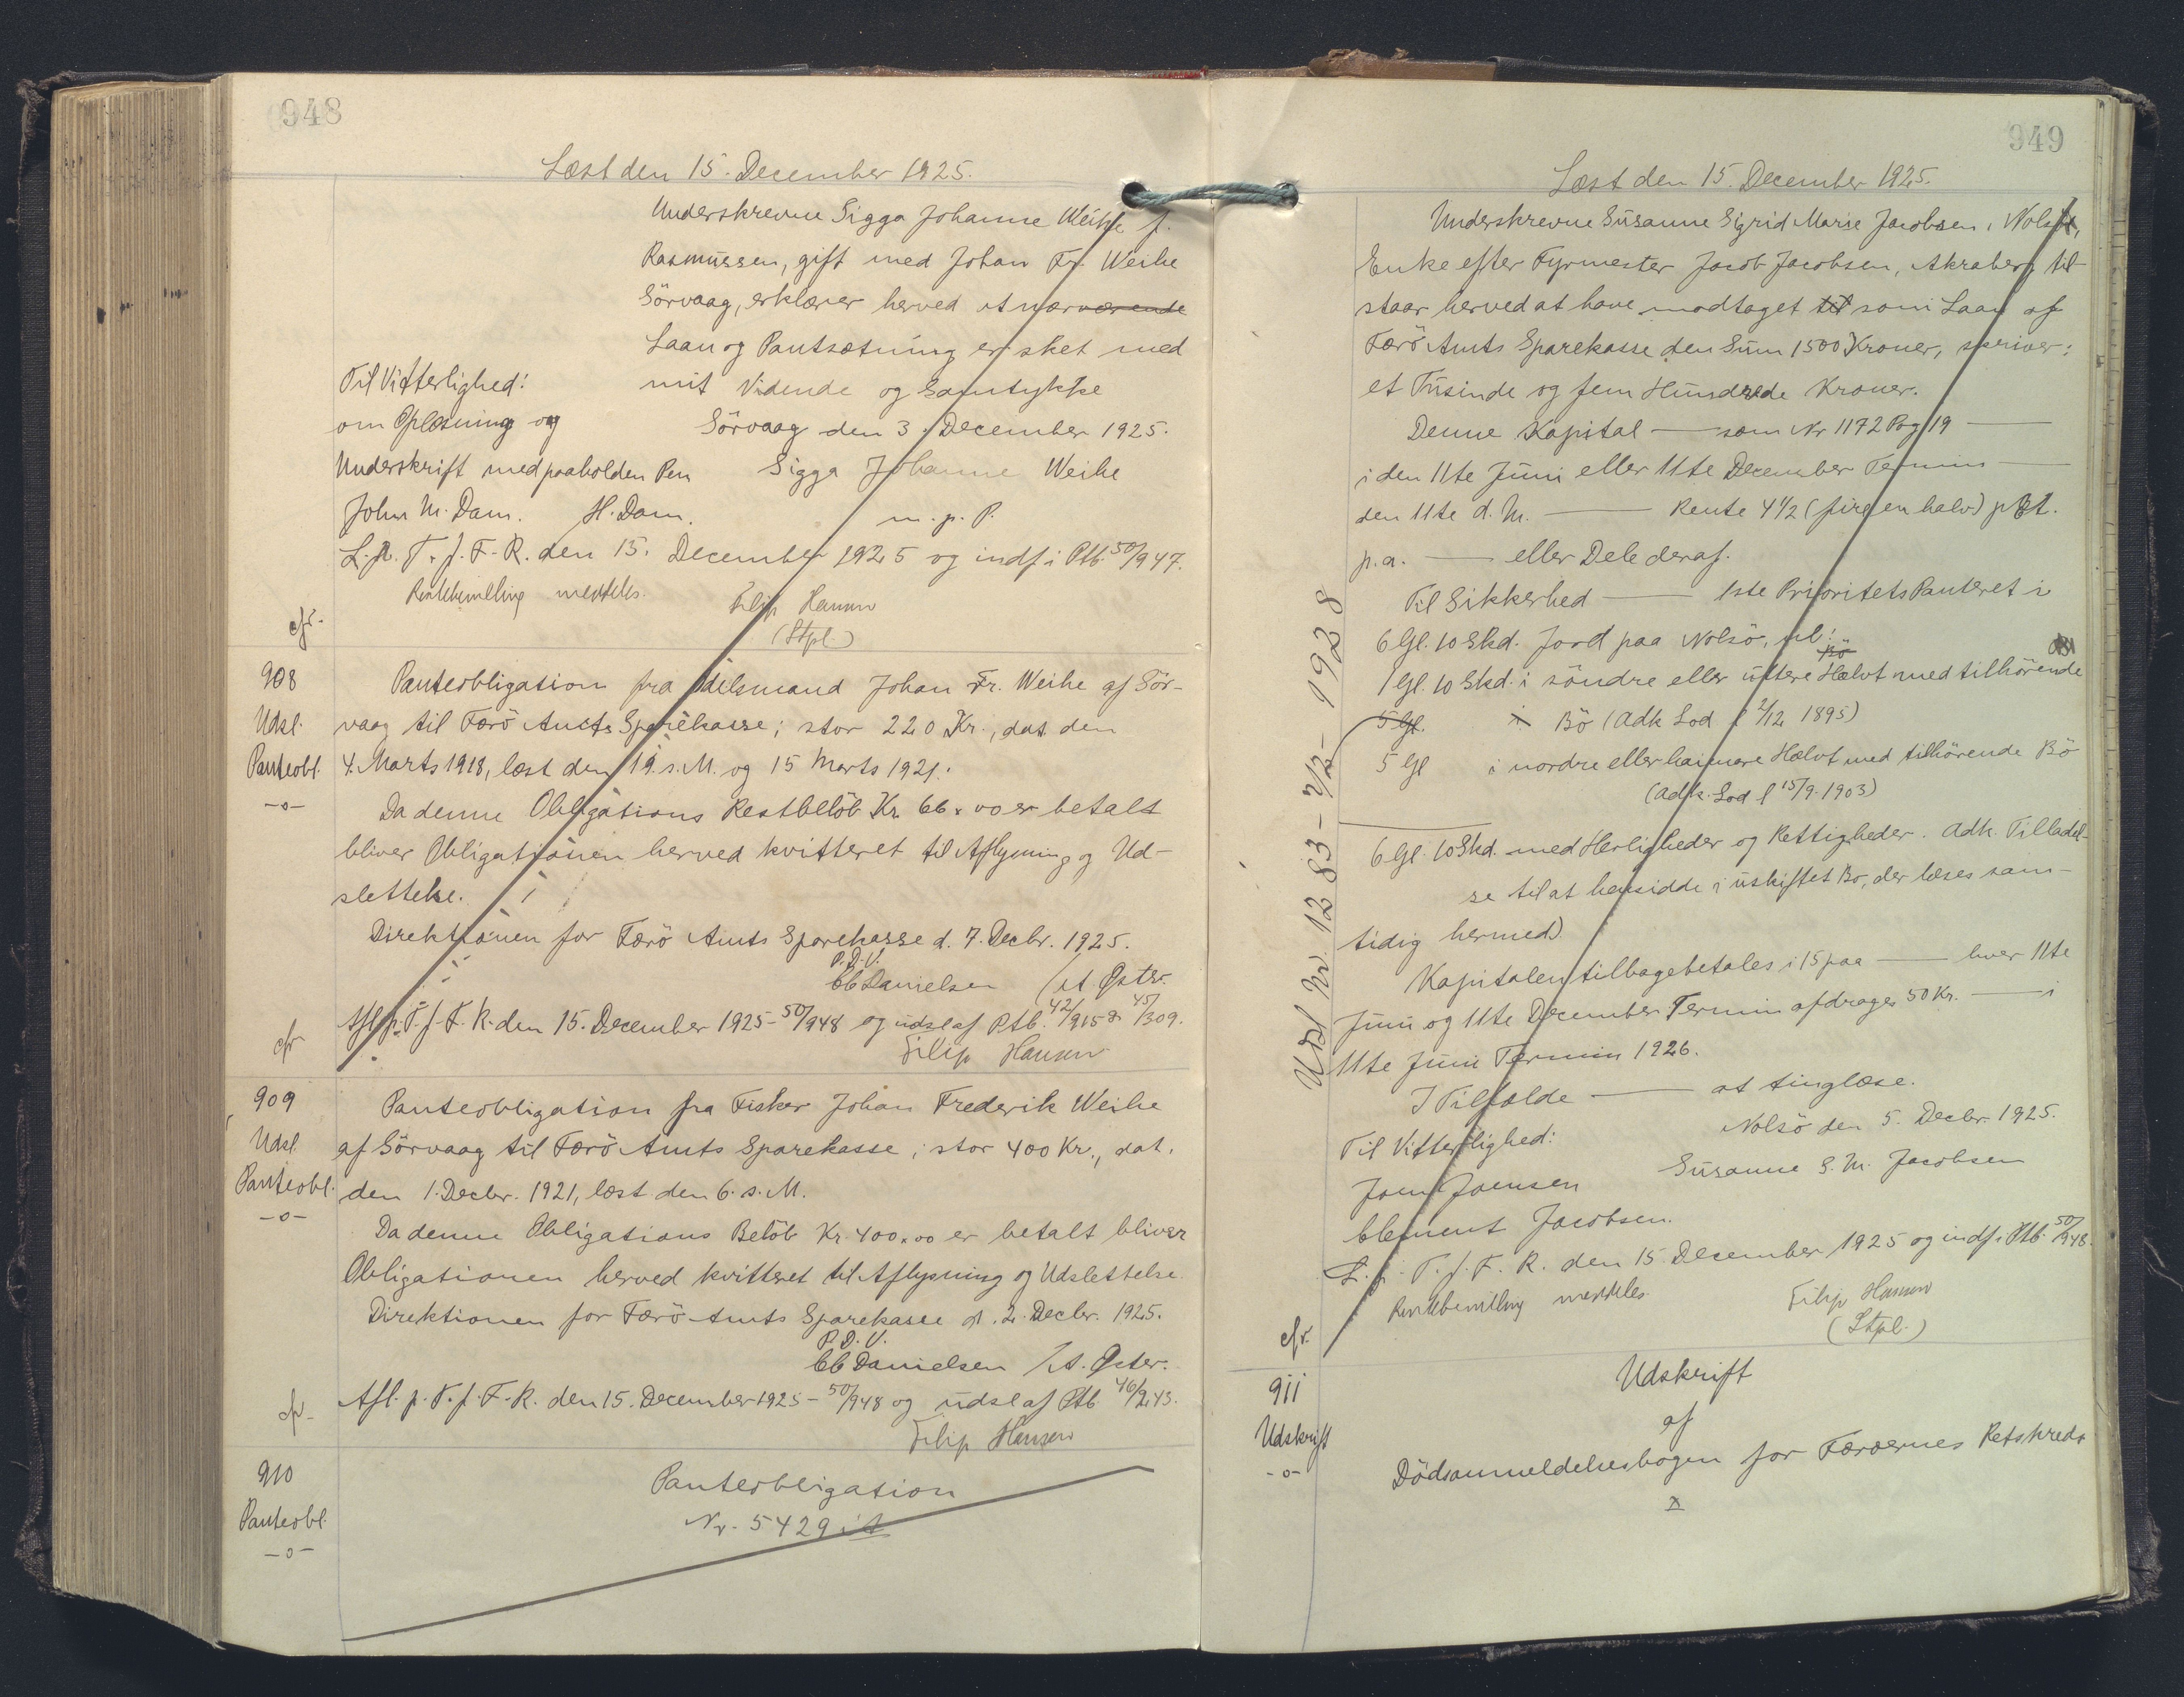 948
Læst den 15. December 1925.
Underskrevne Sigga Johanne Weihe f.
Rasmussen, gift med Johan Fr. Weihe
Sörvaag, erklærer herved at nærværende
Laan og Pantsætning er sket med
Til Vitterlighed: mit Vidende og Samtykke
om Oplæsning og Sörvaag den 3. December 1925.
Underskrift med paaholden Pen Sigga Johanne Weihe
John M. Dam. H. Dam. m. p. P.
L. p. T. f. F. R. den 15. December 1925 og indf i Ptb. 50/947.
Rentebevilling meddeles. Filip Hansen
(Stpl)
cfr.
908 Panteobligation fra Odelsmand Johan Fr. Weihe af Sör-
Udsl. vaag til Færö Amts Sparekasse, stor 220 Kr., dat. den
Panteobl. 4. Marts 1918, læst den 19. s. M. og 15 Marts 1921.
-o-
Da denne Obligations Restbelöb Kr. 66.00 er betalt
bliver Obligationen herved kvitteret til Aflysning og Ud-
slettelse.
Direktionen for Færö Amts Sparekasse d. 7. Decbr. 1925.
P. D. V.
CC Danielsen /A. Öster.
Afl. p. T. f. F. R. den 15. December 1925 - 50/948 og udsl af Ptb. 42/915 & 45/309.
cfr Filip Hansen
909 Panteobligation fra Fisker Johan Frederik Weihe
Udsl. af Sörvaag til Færö Amts Sparekasse, stor 400 Kr., dat.
Panteobl. den 1. Decbr. 1921, læst den 6. s. M.
-o-
Da denne Obligations Belöb Kr. 400.00 er betalt bliver
Obligationen herved kvitteret til Aflysning og Udslettelse.
Direktionen for Færö Amts Sparekasse d. 2. Decbr. 1925.
P. D. V.
CC Danielsen /A. Öster.
Afl. p. T. f. F. R. den 15. December 1925 - 50/948 og udsl af Ptb 46/243.
cfr Filip Hansen
910 Panteobligation
Panteobl. Nr. 5429
-o-
949
Læst den 15. December 1925.
Underskrevne Susanne Sigrid Marie Jacobsen, Nolsö,
Enke efter Fyrmester Jacob Jacobsen, Akraberg til-
staar herved at have modtaget til som Laan af
Færö Amts Sparekasse den Sum 1500 Kroner, skriver:
et Tusinde og fem Hundrede Kroner.
Denne Kapital — som Nr 1172 Pag 19 —
i den 11te Juni eller 11te December Termin —
den 11te d. M. — Rente 4 1/2 (fire en halv) pCt.
p.a. — eller Dele deraf.
Til Sikkerhed — 1ste Prioritets Panteret i
6 Gl. 10 Skd. Jord paa Nolsö, nl:
Bö
1 Gl. 10 Skd. i söndre eller uttere Hælvt med tilhörende
5 Gl. i Bö (Adk Lod l 2/12 1895)
5 Gl i nordre eller haimere Hælvt med tilhörende Bö
(Adk. Lod l 15/9. 1903)
6 Gl. 10 Skd. med Herligheder og Rettigheder. Adk. Tilladel-
se til at hensidde i uskiftet Bo, der læses sam-
tidig hermed.
Kapitalen tilbagebetales i 15 paa — hver 11te
Juni og 11te December Termin afdrages 50 Kr. — i
11te Juni Termin 1926.
I Tilfælde — at tinglæse.
Til Vitterlighed: Nolsö den 5. Decbr. 1925.
Joen Joensen Susanne S. M. Jacobsen
Clement Jacobsen.
L. p. T. f. F. R. den 15. December 1925 og indf. i Ptb. 50/948.
Rentebevilling meddeles Filip Hansen
cfr. (Stpl.)
Udsl Nr 1283 - 7/2 - 1928
911 Udskrift
Udskrift af
-o- Dödsanmeldelsesbogen for Færøernes Retskreds
x